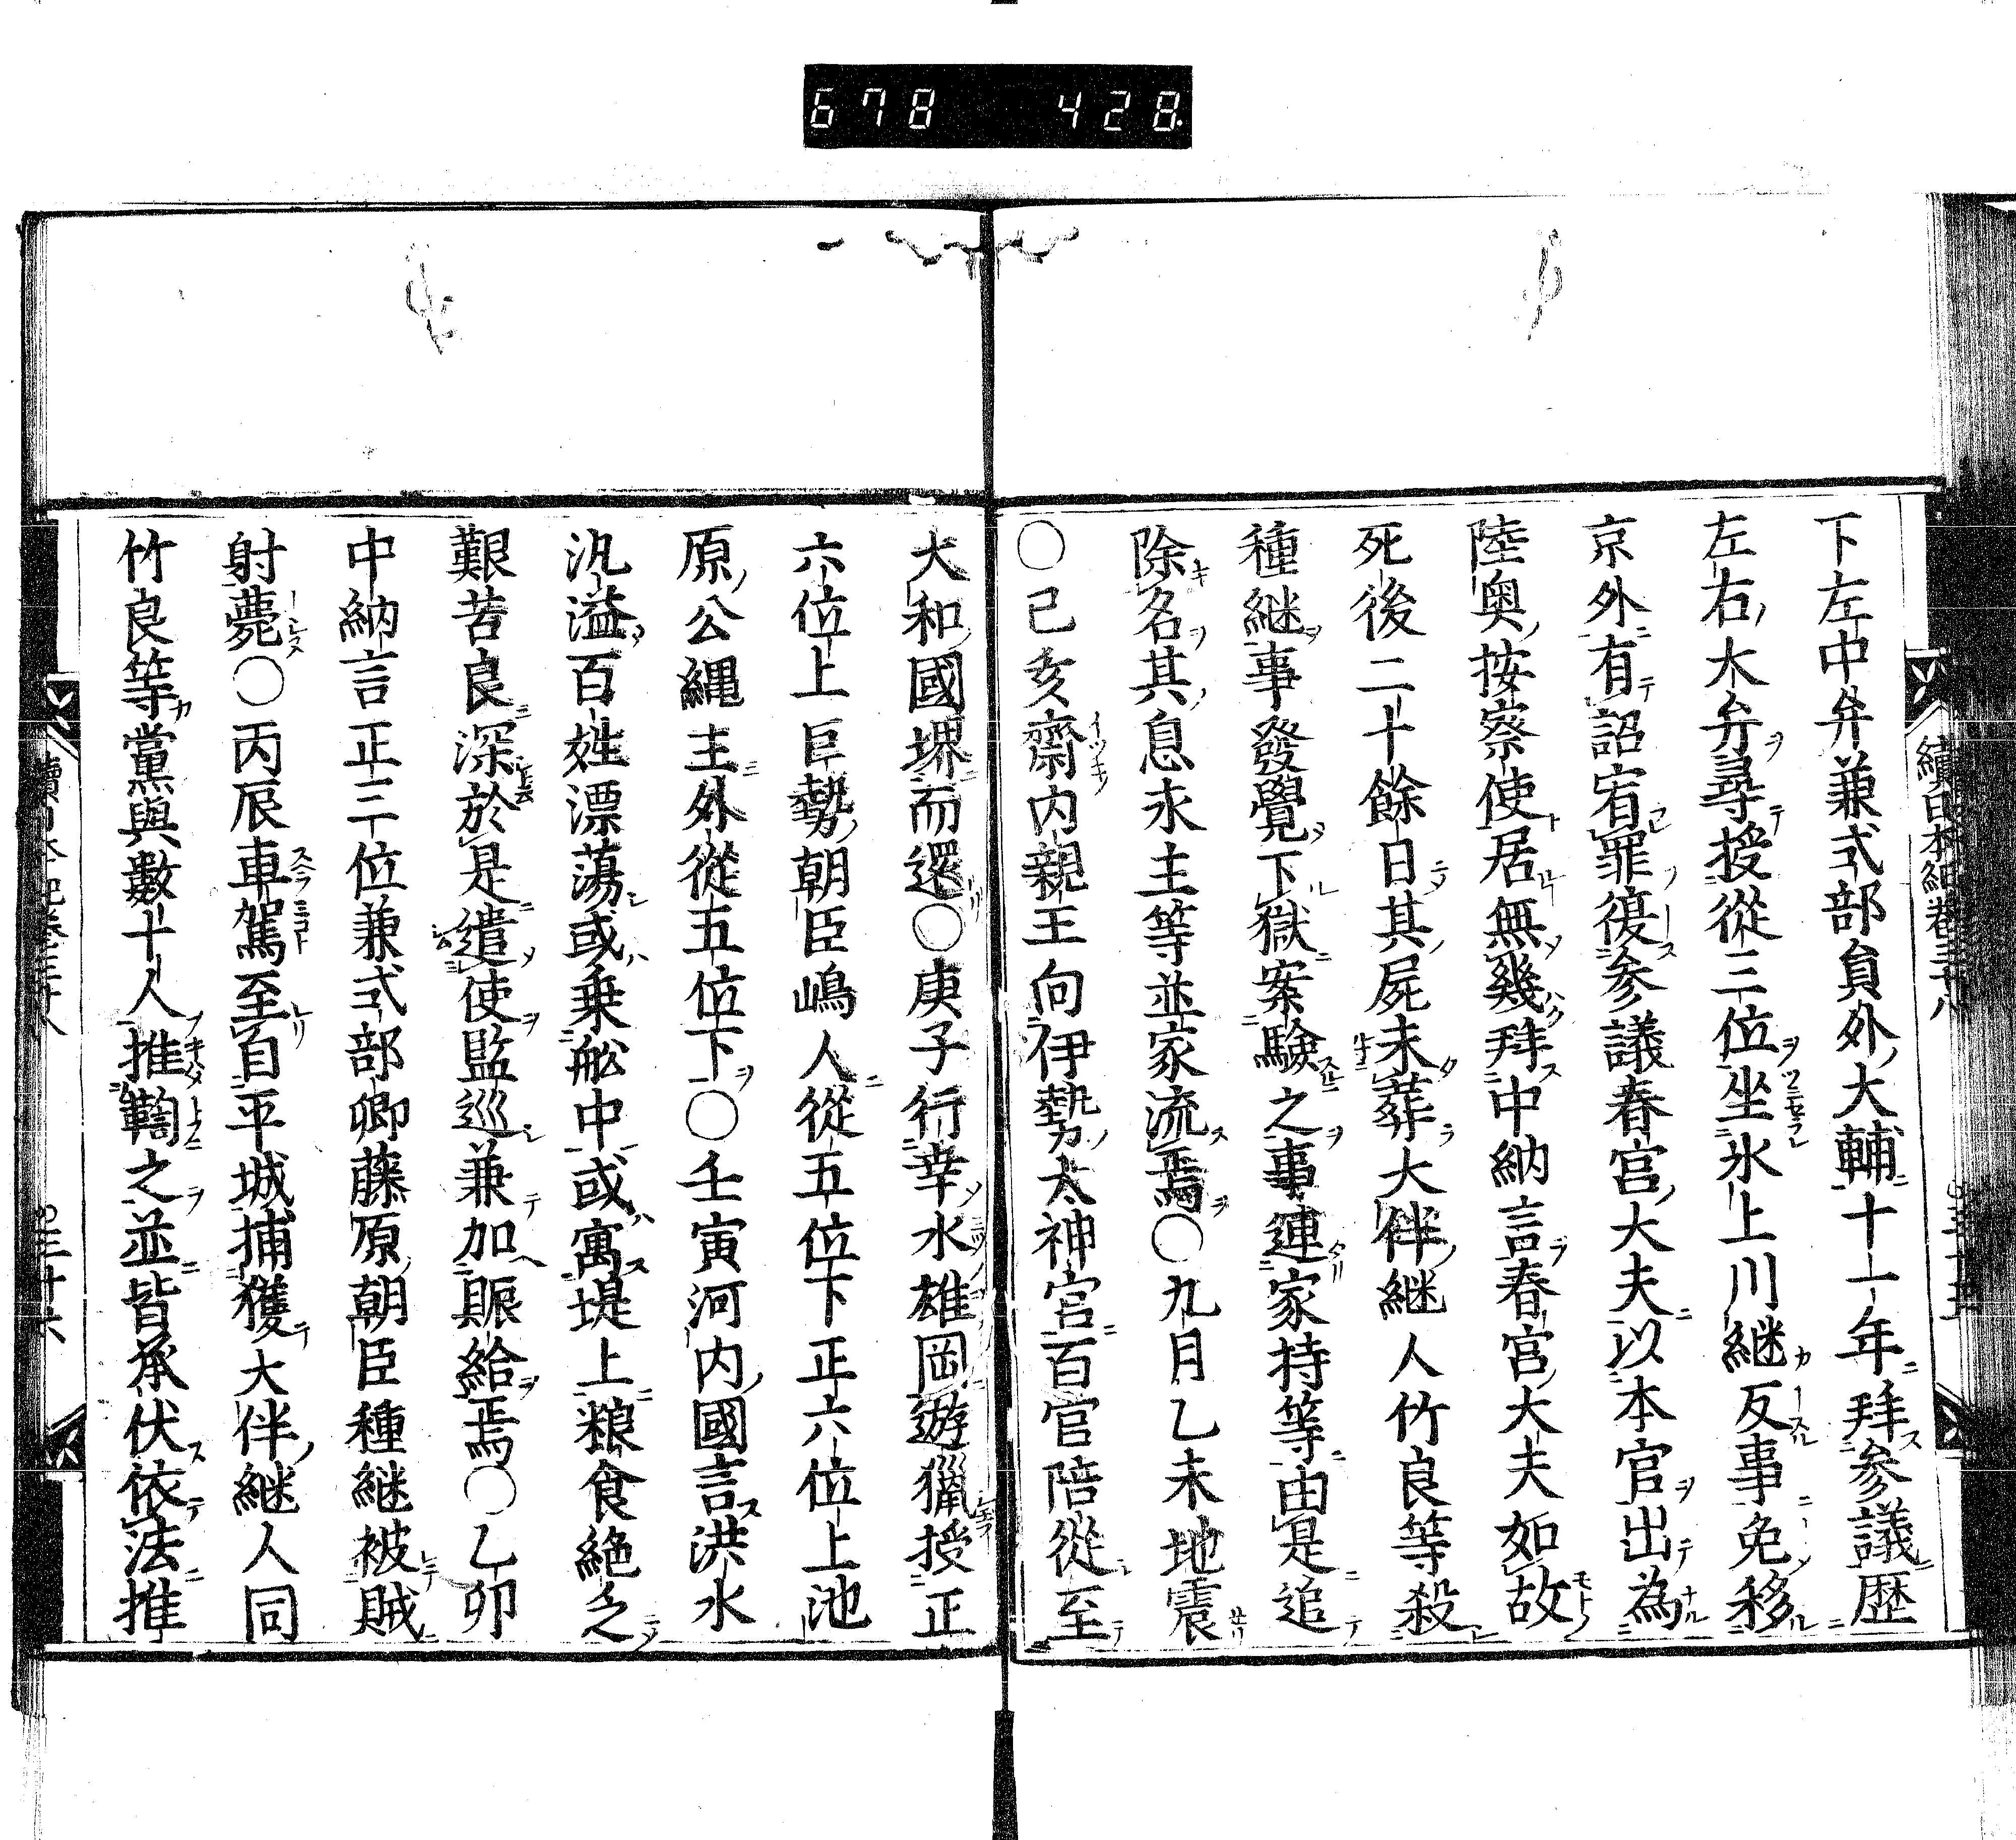 678 428
續日本紀卷三十八
下左中弁兼式部員外大輔十一年拜参議歴
左右大弁尋授從三位坐氷上川継反事免移
京外有詔宥罪復参議春宮大夫以本官出為
陸奥按察使居無幾拜中納言春宮大夫如故
死後二十餘日其屍未葬大伴継人竹良等殺
種継事發覺下獄案驗之事連家持等由是追
除名其息永主等並家流焉〇九月乙未地震
〇己亥齋内親王向伊勢太神宮百官陪從至
大和國堺而還〇庚子行幸水雄岡遊獵授正
六位上巨勢朝臣嶋人從五位下正六位上池
原公縄主外從五位下〇壬寅河内國言洪水
汎溢百姓漂蕩或乗舩中或寓堤上粮食絶乏
艱苦良深於是遣使監巡兼加賑給焉〇乙卯
中納言正三位兼式部卿藤原朝臣種継被賊
射薨〇丙辰車駕至自平城捕獲大伴継人同
竹良等黨與數十人推鞫之並皆承伏依法推
三十六